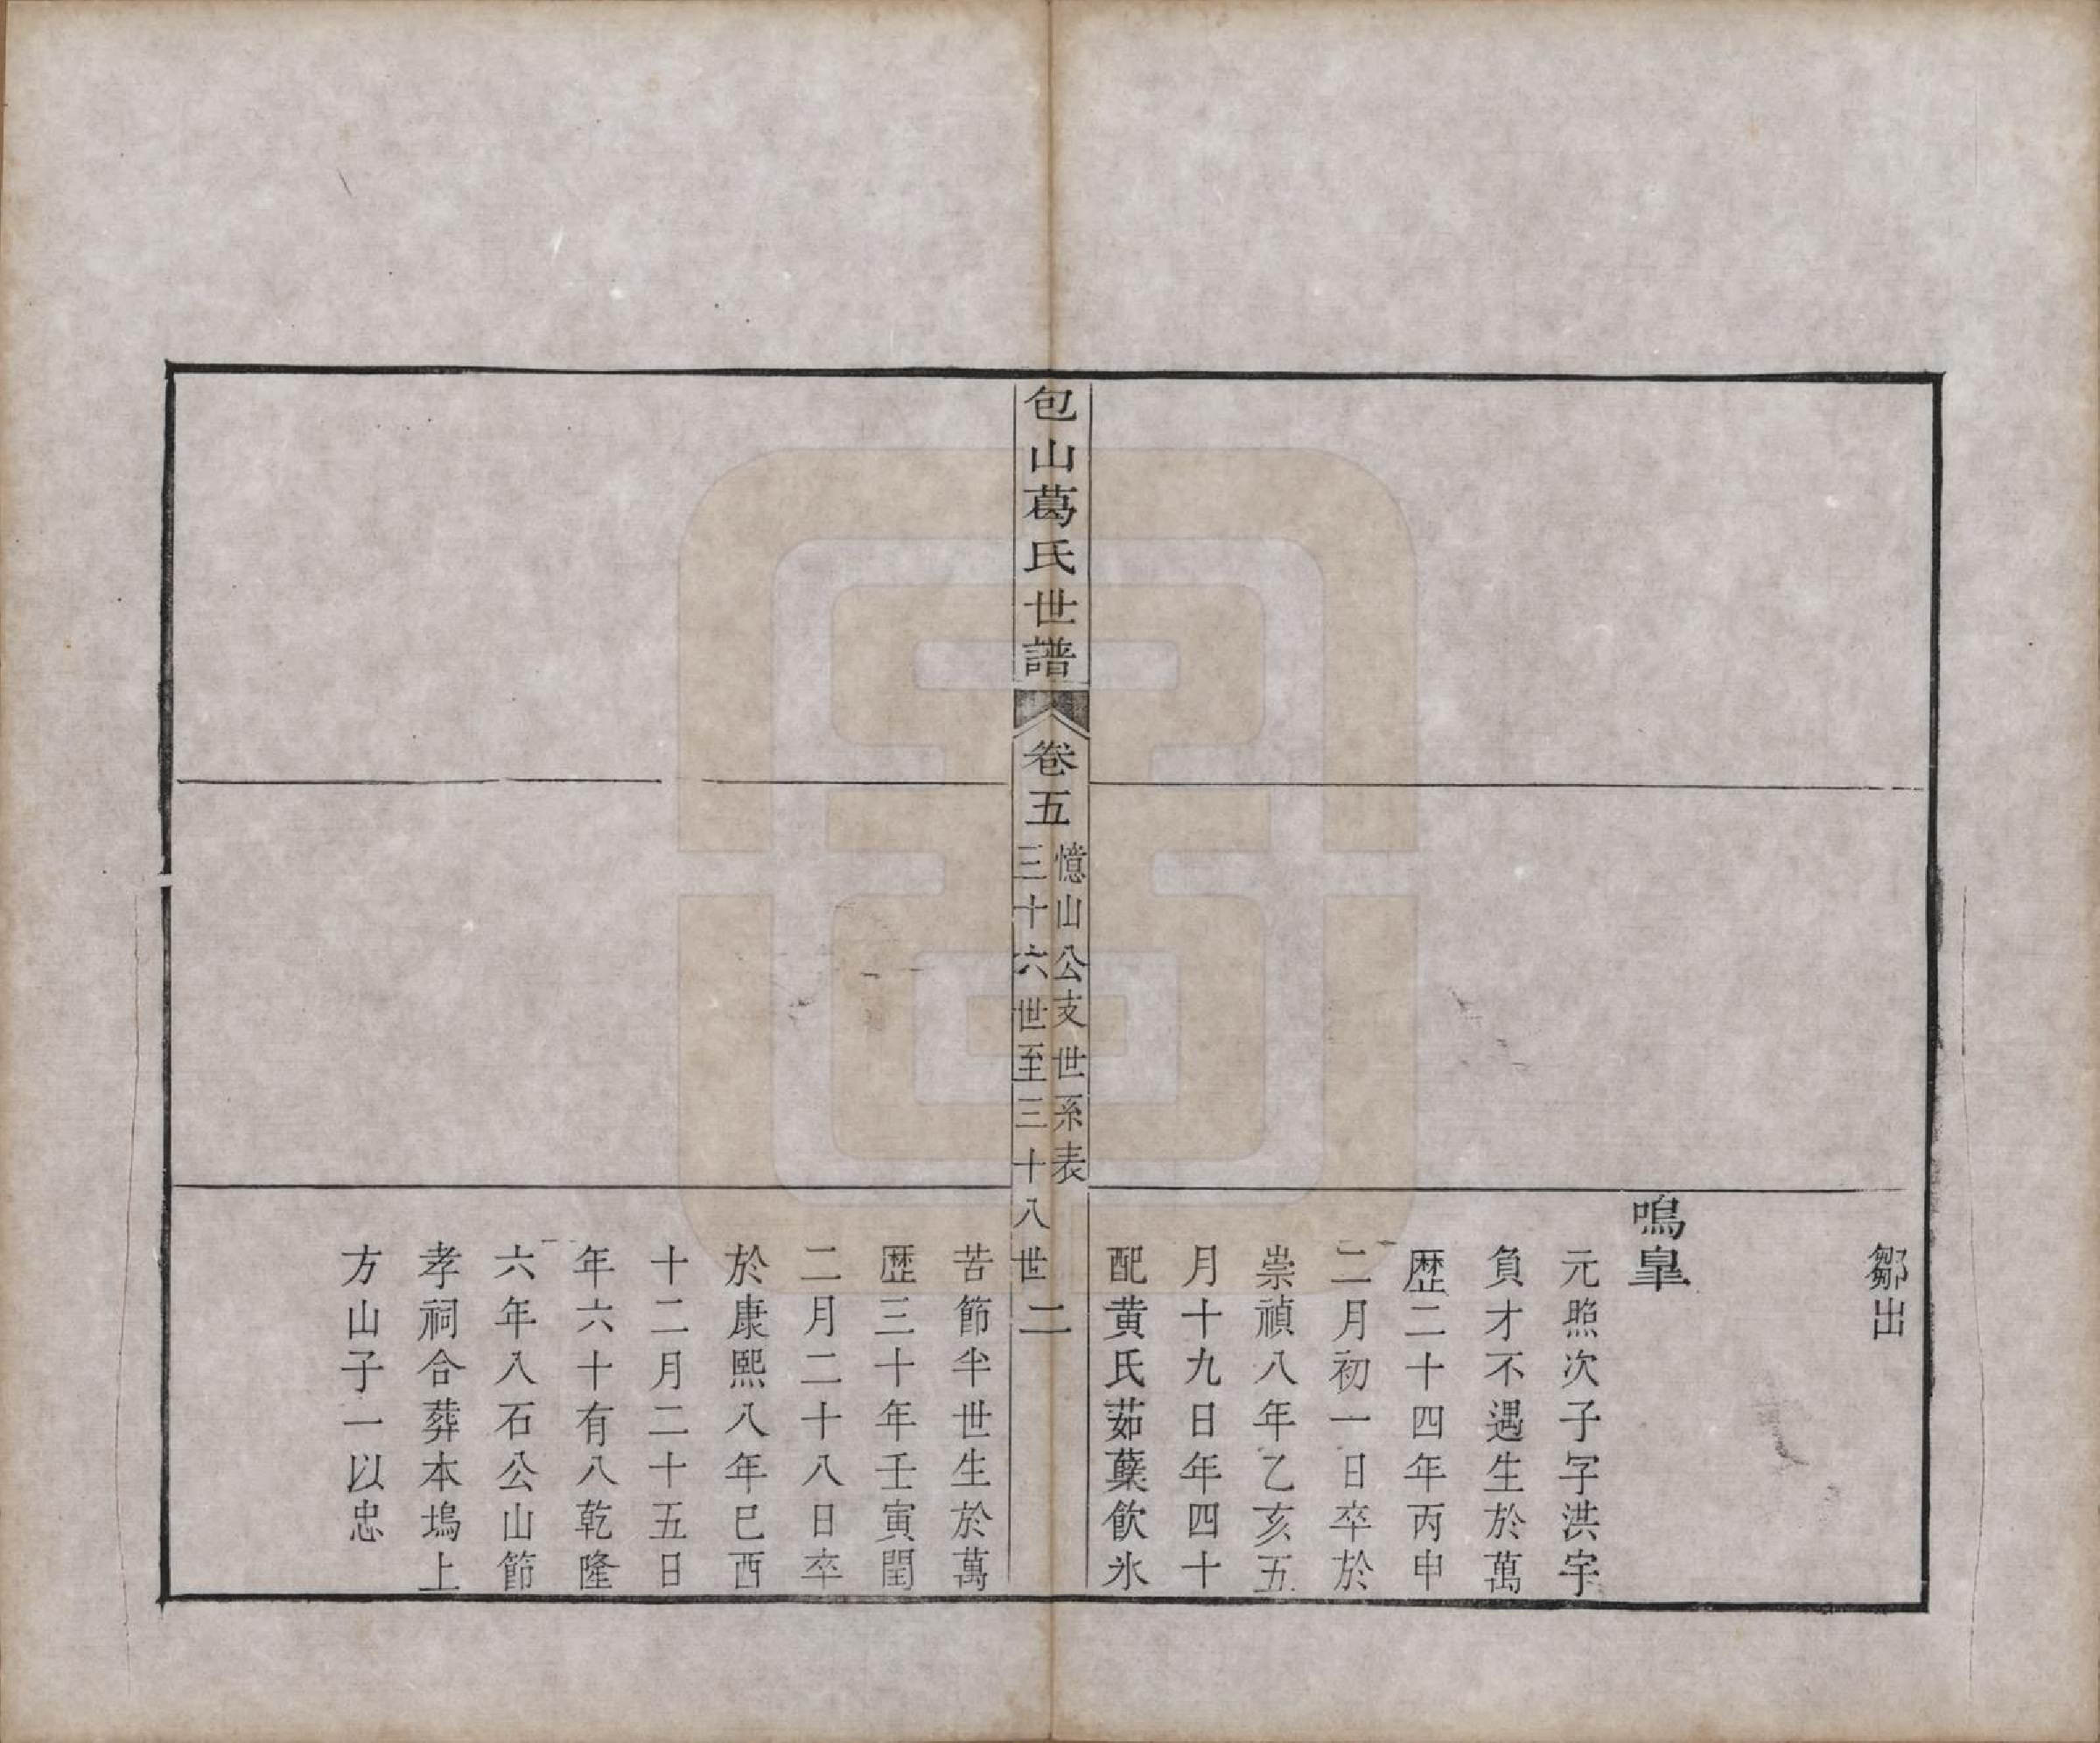 鄒出
鳴臯
元照次子字洪宇
負才不遇生於萬
歷二十四年丙申
二月初一日卒於
崇禎八年乙亥五
月十九日年四十
配黄氏茹蘗飲氷
包山葛氏世譜
卷五
憶山公支世系表
三十六世至三十八世
二
苦節半世生於萬
歷三十年壬寅閏
二月二十八日卒
於康熙八年巳酉
十二月二十五日
年六十有八乾隆
六年入石公山節
孝祠合葬本塢上
方山子一以忠